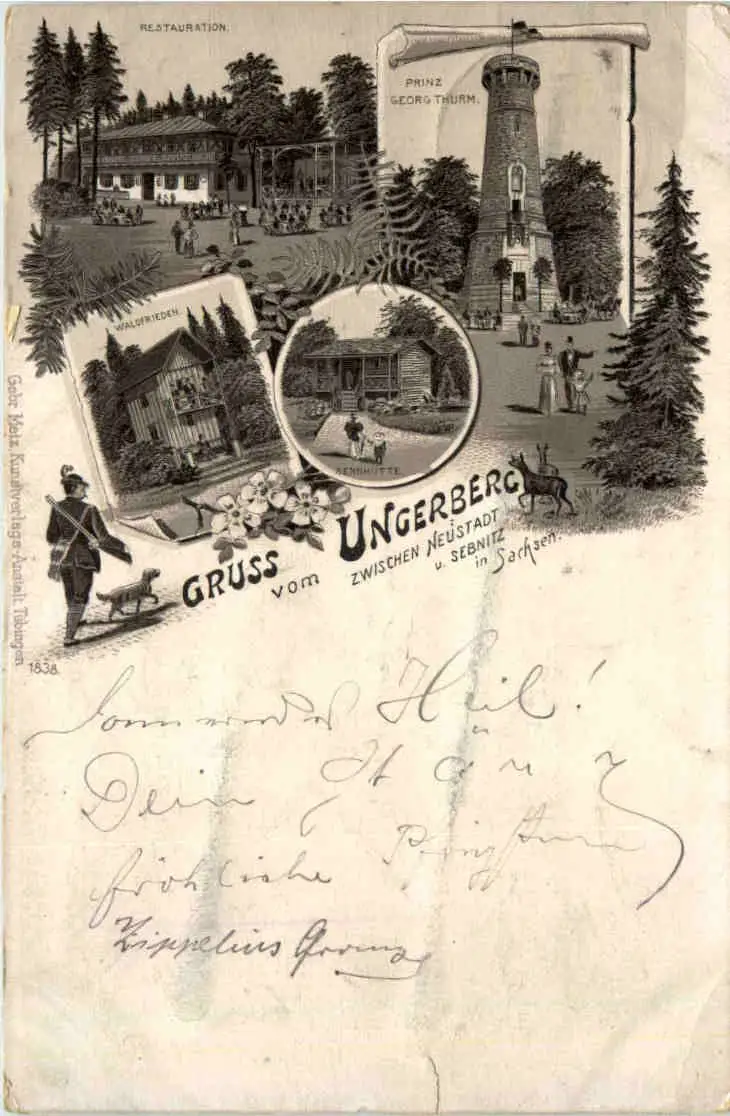 RESTAURATION.
PRINZ
GEORG THURM.
WALDFRIEDEN.
SENNHÜTTE.
GRUSS vom UNGERBERG
ZWISCHEN NEUSTADT
u. SEBNITZ
in Sachsen.
Gebr. Metz, Kunstverlags-Anstalt, Tübingen
1838.
Heil!
Dein
fröhliche
Zippelius